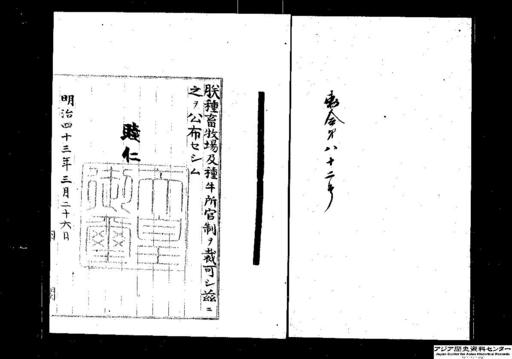 勅令第八十二号
朕種畜牧場及種牛所官制ヲ裁可シ茲ニ
之ヲ公布セシム
睦仁
天皇御璽
明治四十三年三月二十六日
内閣
アジア歴史資料センター
Japan Center for Asian Historical Records